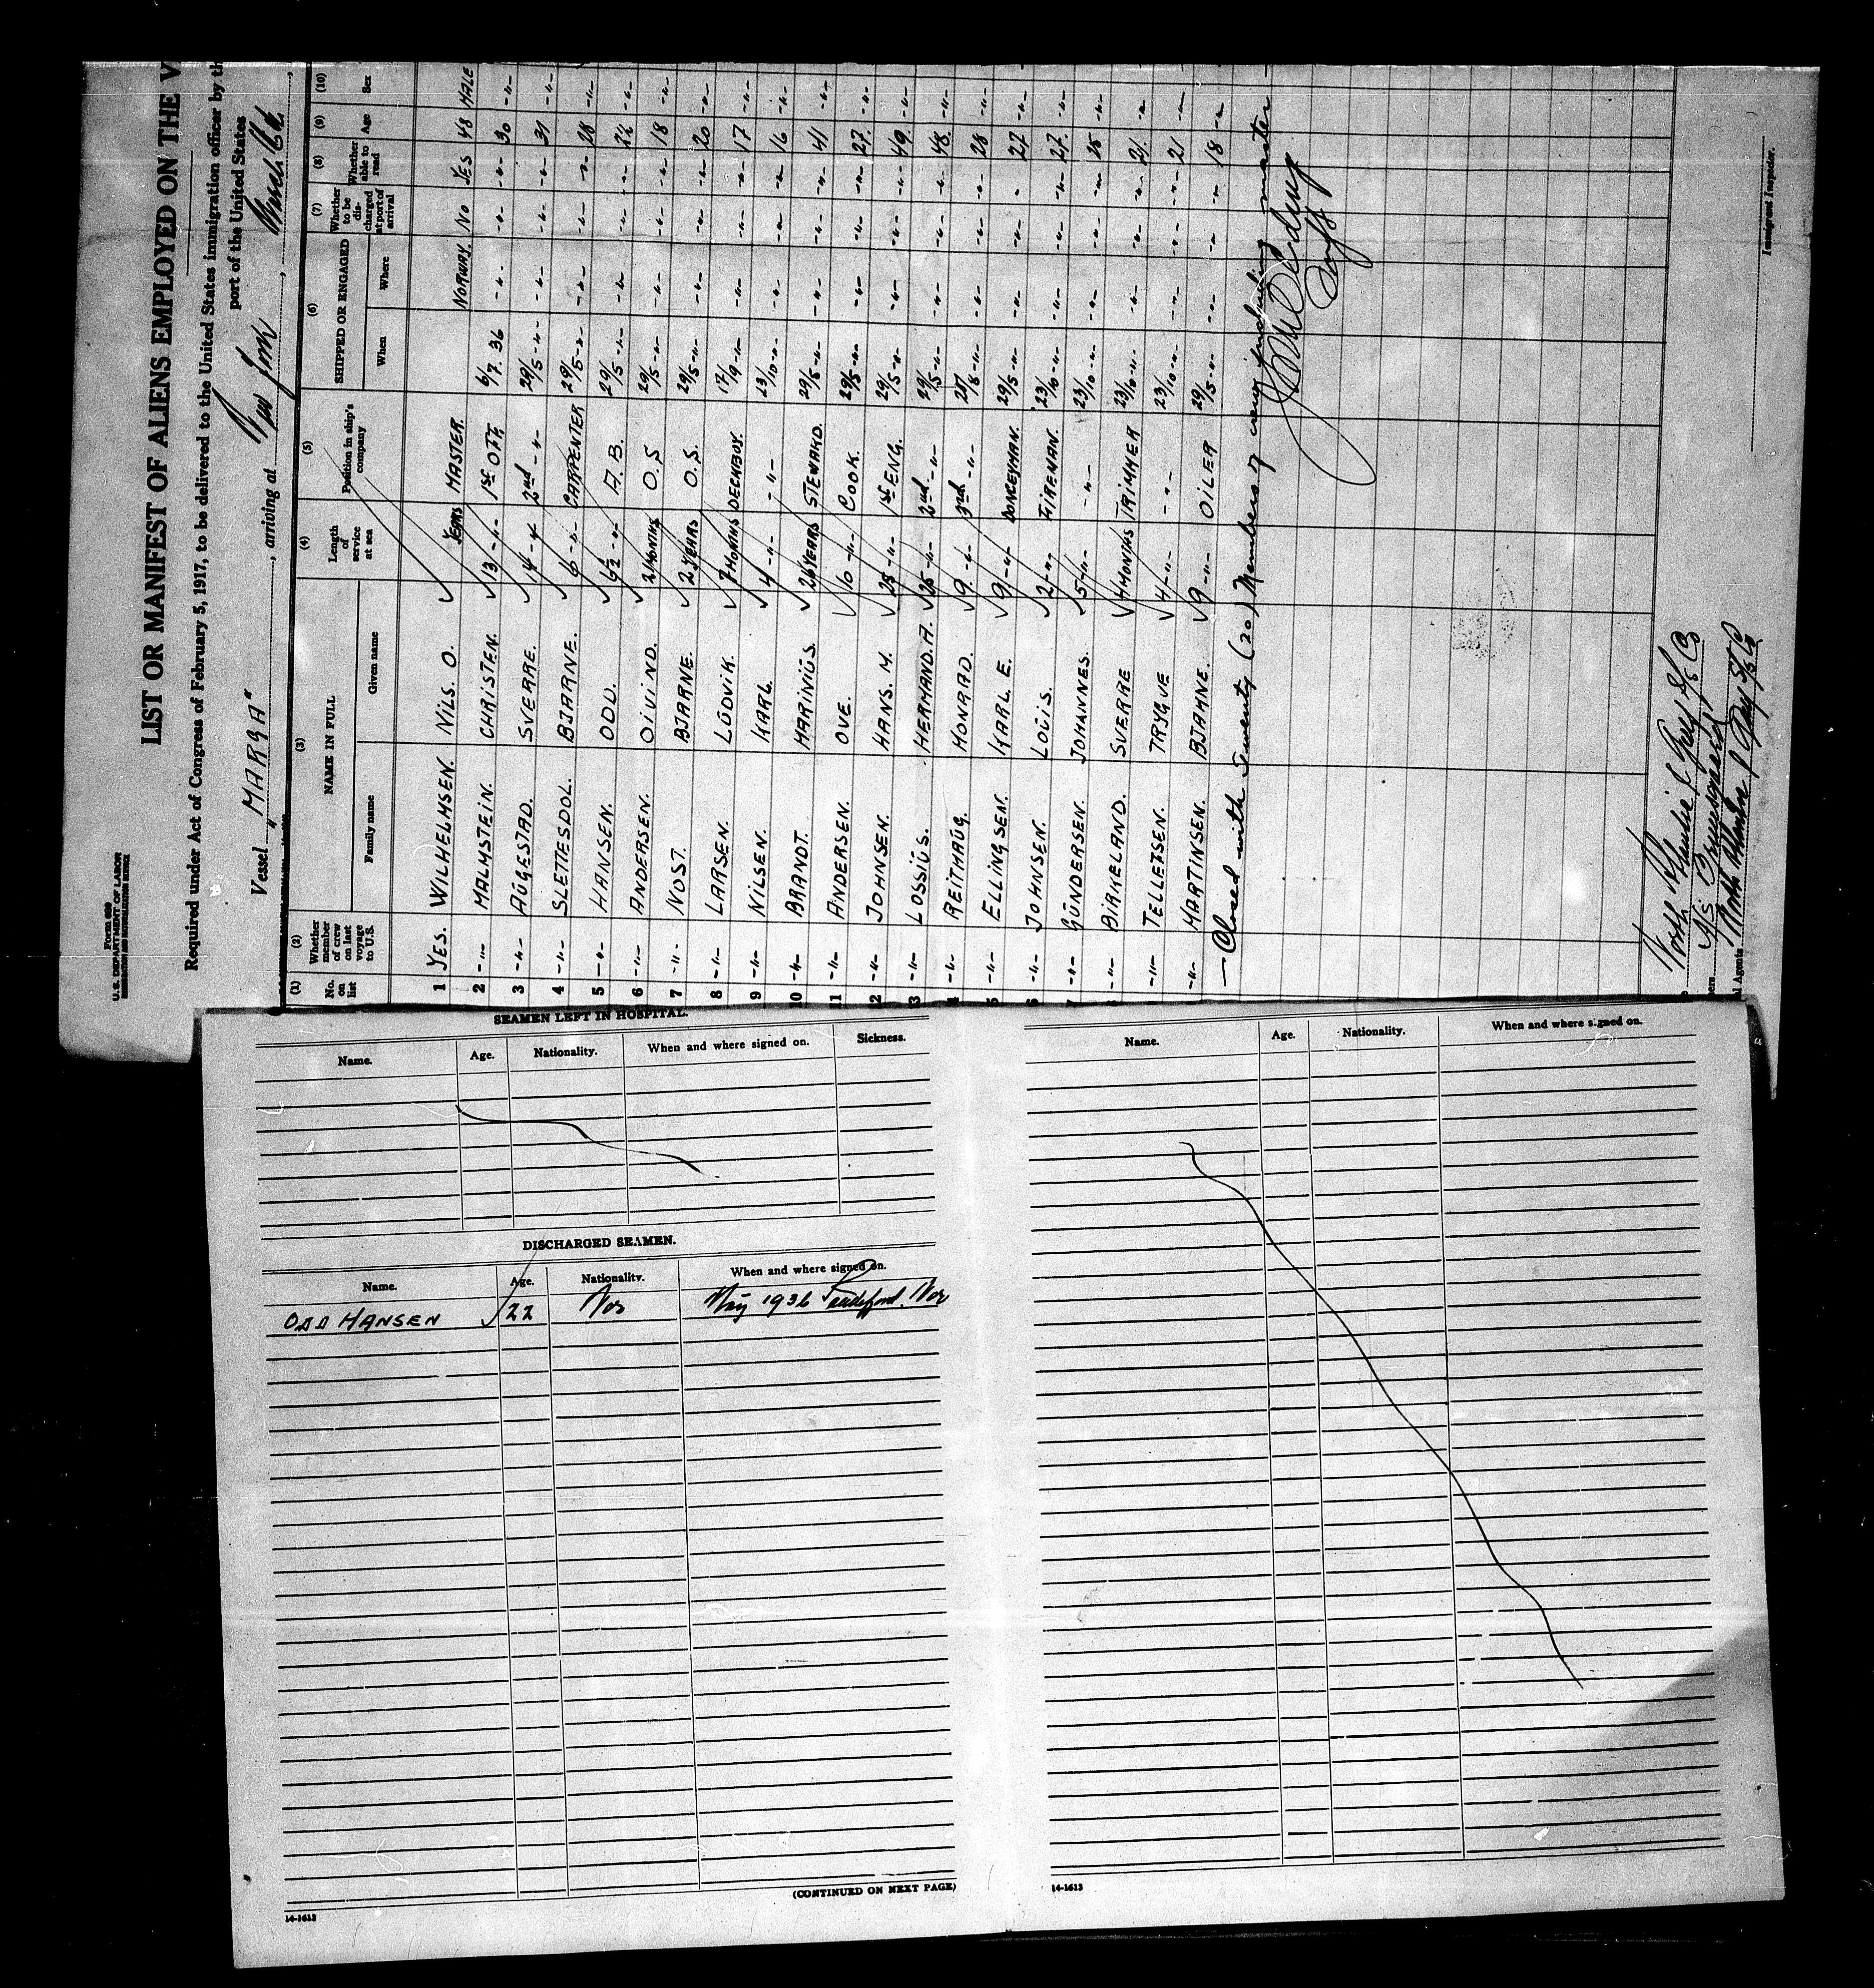 Form 689
U.S. DEPARTMENT OF LABOR
IMMIGRATION AND NATURALIZATION SERVICE
LIST OR MANIFEST OF ALIENS EMPLOYED ON THE V
Required under Act of Congress of February 5, 1917, to be delivered to the United States immigration officer by th
port of the United States
Vessel "MARGA", arriving at New York,
(1) (2) (3) (4) (5) (6) (7) (8) (9) (10)
No. on list Whether member of crew on last voyage to U.S. NAME IN FULL Length of service at sea Position in ship's company SHIPPED OR ENGAGED Whether to be discharged at port of arrival Whether able to read Age Sex
Family name Given name When Where
1 YES. WILHELMSEN. NILS. O. YEARS MASTER. NORWAY. NO YES 48 MALE
2 -"- MALMSTEIN. CHRISTEN. 13 -"- 1st OFF 6/7. 36 -"- -"- -"- 30 -"-
3 -"- AUGESTAD. SVERRE. 14 -"- 2nd -"- 29/5 -"- -"- -"- -"- 31 -"-
4 -"- SLETTESDOL. BJARNE. 6 -"- CARPENTER 29/5 -"- -"- -"- -"- 28 -"-
5 -"- HANSEN. ODD. 6½ -"- A.B. 29/5 -"- -"- -"- -"- 22 -"-
6 -"- ANDERSEN. OIVIND. 21 MONTHS O.S 29/5 -"- -"- -"- -"- 18 -"-
7 -"- NOST. BJARNE. 2 YEARS O.S. 29/5 -"- -"- -"- -"- 20 -"-
8 -"- LARSEN. LUDVIK. 7 MONTHS DECKBOY. 17/9 -"- -"- -"- -"- 17 -"-
9 -"- NILSEN. KARL. 4 -"- -"- 23/10 -"- -"- -"- -"- 16 -"-
10 -"- BRANDT. MARINIUS. 26 YEARS STEWARD. 29/5 -"- -"- -"- -"- 41 -"-
11 -"- ANDERSEN. OVE. 10 -"- COOK. 29/5 -"- -"- -"- -"- 27. -"-
12 -"- JOHNSEN. HANS. M. 25 -"- 1st ENG. 29/5 -"- -"- -"- -"- 49 -"-
13 -"- LOSSIUS. HERMAND. A. 25 -"- 2nd -"- 29/5 -"- -"- -"- -"- 48. -"-
4 -"- REITHAUG. KONRAD. 9 -"- 3rd -"- 25/8 -"- -"- -"- -"- 28 -"-
5 -"- ELLINGSEN. KARL E. 9 -"- DONCEYMAN. 29/5 -"- -"- -"- 27 -"-
6 -"- JOHNSEN. LOUIS. 2 -"- FIREMAN. 23/10 -"- -"- -"- -"- 27. -"-
7 -"- GUNDERSEN. JOHANNES. 5 -"- -"- 23/10 -"- -"- -"- -"- 25 -"-
8 -"- BIRKELAND. SVERRE 4 MONTHS TRIMMER 23/10 -"- -"- -"- -"- 21. -"-
-"- TELLEFSEN. TRYGVE 4 -"- -"- 23/10 -"- -"- -"- -"- 21 -"-
-"- MARTINSEN. BJARNE. 9 -"- OILER 29/5 -"- -"- -"- -"- 18 -"-
— Closed with Twenty (20) Members of crew including master —
Immigrant Inspector.
ners A/S
al Agents
SEAMEN LEFT IN HOSPITAL.
Name. Age. Nationality. When and where signed on. Sickness.
DISCHARGED SEAMEN.
Name. Age. Nationality. When and where signed on.
ODD HANSEN 22 Nor May 1936 Sandefjord. Nor
(CONTINUED ON NEXT PAGE)
14-1613
Name. Age. Nationality. When and where signed on.
14-1613